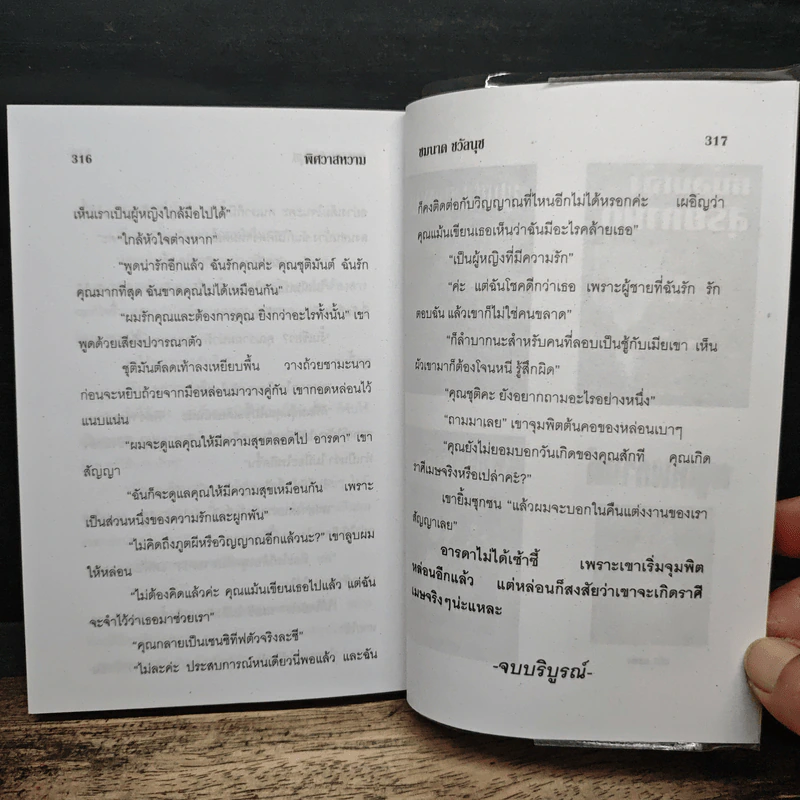 316
พิศวาสหวาม
เห็นเราเป็นผู้หญิงใกล้มือไปได้”
“ใกล้หัวใจต่างหาก”
“พูดน่ารักอีกแล้ว ฉันรักคุณค่ะ คุณชุติมันต์ ฉันรัก
คุณมากที่สุด ฉันขาดคุณไม่ได้เหมือนกัน”
“ผมรักคุณและต้องการคุณ ยิ่งกว่าอะไรทั้งนั้น” เขา
พูดด้วยเสียงปวารณาตัว
ชุติมันต์ลดเท้าลงเหยียบพื้น วางถ้วยชามะนาว
ก่อนจะหยิบถ้วยจากมือหล่อนมาวางคู่กัน เขากอดหล่อนไว้
แนบแน่น
“ผมจะดูแลคุณให้มีความสุขตลอดไป อารดา” เขา
สัญญา
“ฉันก็จะดูแลคุณให้มีความสุขเหมือนกัน เพราะ
เป็นส่วนหนึ่งของความรักและผูกพัน”
“ไม่คิดถึงภูตผีหรือวิญญาณอีกแล้วนะ?” เขาลูบผม
ให้หล่อน
“ไม่ต้องคิดแล้วค่ะ คุณแม้นเขียนเธอไปแล้ว แต่ฉัน
จะจำไว้ว่าเธอมาช่วยเรา”
“คุณกลายเป็นเซนซิทีฟตัวจริงละซี”
“ไม่ละค่ะ ประสบการณ์หนเดียวนี่พอแล้ว และฉัน
ชมนาด ชวัลนุช
317
ก็คงติดต่อกับวิญญาณที่ไหนอีกไม่ได้หรอกค่ะ เผอิญว่า
คุณแม้นเขียนเธอเห็นว่าฉันมีอะไรคล้ายเธอ”
“เป็นผู้หญิงที่มีความรัก”
“ค่ะ แต่ฉันโชคดีกว่าเธอ เพราะผู้ชายที่ฉันรัก รัก
ตอบฉัน แล้วเขาก็ไม่ใช่คนขลาด”
“ก็ลำบากนะสำหรับคนที่ลอบเป็นชู้กับเมียเขา เห็น
ผัวเขามาก็ต้องโจนหนี รู้สึกผิด”
“คุณชุติคะ ยังอยากถามอะไรอย่างหนึ่ง”
“ถามมาเลย” เขาจุมพิตต้นคอของหล่อนเบาๆ
“คุณยังไม่ยอมบอกวันเกิดของคุณสักที คุณเกิด
ราศีเมษจริงหรือเปล่าคะ?”
เขายิ้มซุกซน “แล้วผมจะบอกในคืนแต่งงานของเรา
สัญญาเลย”
อารดาไม่ได้เซ้าซี้ เพราะเขาเริ่มจุมพิต
หล่อนอีกแล้ว แต่หล่อนก็สงสัยว่าเขาจะเกิดราศี
เมษจริงๆน่ะแหละ
-จบบริบูรณ์-